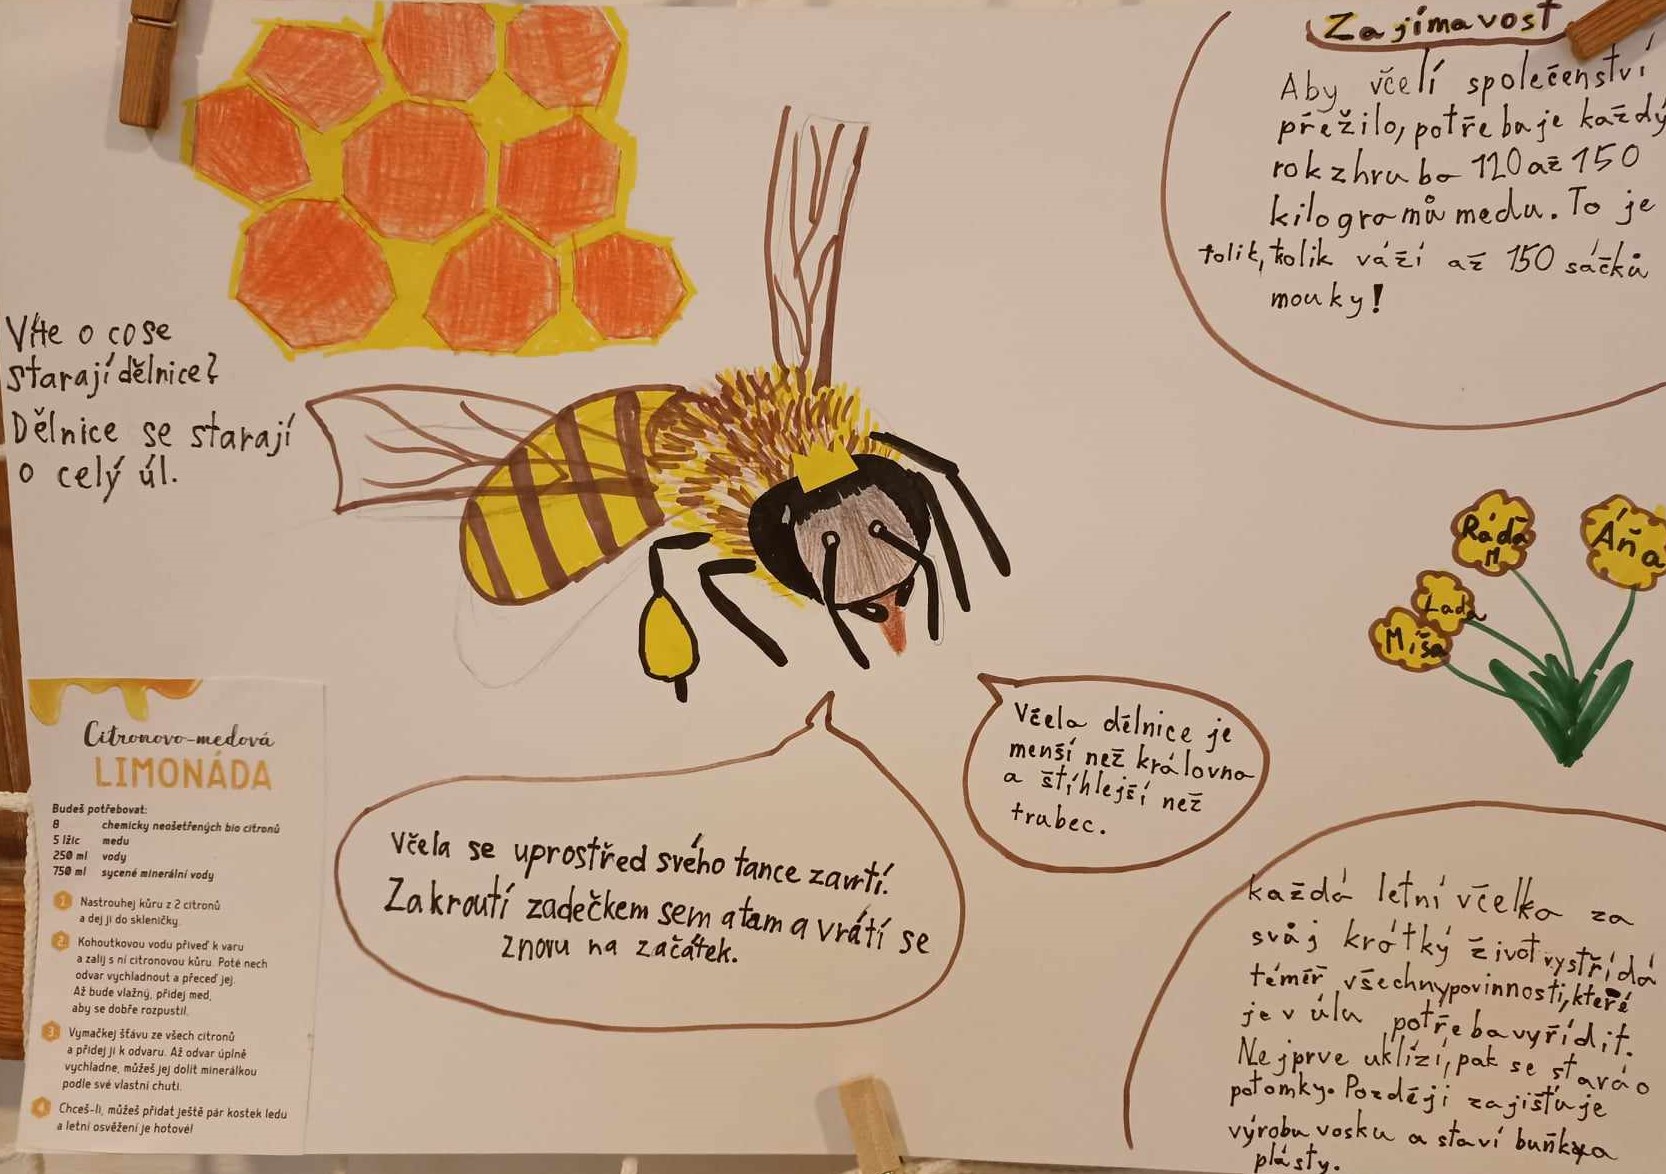 Zajímavost
Aby včelí společenství
přežilo, potřebuje každý
rok zhruba 120 až 150
kilogramů medu. To je
tolik, kolik váží až 150 sáčků
mouky!
Víte o co se
starají dělnice?
Dělnice se starají
o celý úl.
Ráďa
M
Áňa
Lada
Míša
Včela dělnice je
menší než královna
a štíhlejší než
trubec.
Včela se uprostřed svého tance zavrtí.
Zakroutí zadečkem sem a tam a vrátí se
znovu na začátek.
Citronovo-medová
LIMONÁDA
Budeš potřebovat:
8 chemicky neošetřených bio citronů
5 lžic medu
250 ml vody
750 ml sycené minerální vody
1 Nastrouhej kůru z 2 citronů
a dej ji do skleničky.
2 Kohoutkovou vodu přiveď k varu
a zalij s ní citronovou kůru. Poté nech
odvar vychladnout a přeceď jej.
Až bude vlažný, přidej med,
aby se dobře rozpustil.
3 Vymačkej šťávu ze všech citronů
a přidej ji k odvaru. Až odvar úplně
vychladne, můžeš jej dolít minerálkou
podle své vlastní chuti.
4 Chceš-li, můžeš přidat ještě pár kostek ledu
a letní osvěžení je hotové!
každá letní včelka za
svůj krátký život vystřídá
téměř všechny povinnosti, které
je v úlu potřeba vyřídit.
Nejprve uklízí, pak se stará o
potomky. Později zajišťuje
výrobu vosku a staví buňky a
plásty.